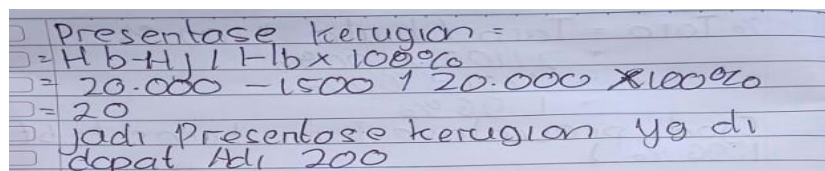 Presentase kerugian =
= Hb-Hj / Hb x 100%
= 20.000 - 1500 / 20.000 x 100%
= 20
jadi Presentase kerugian yg di
dapat Adi 200